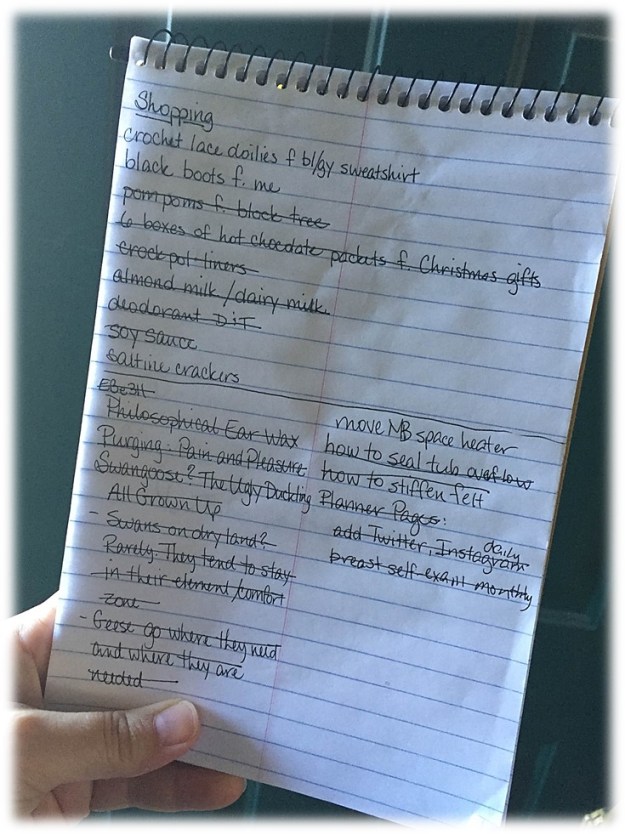 Shopping
crochet lace doilies f bl/gy sweatshirt
black boots f. me
pom poms f. block tree
6 boxes of hot chocolate packets f. Christmas gifts
crock pot liners
almond milk/dairy milk
deodorant DiT
soy sauce
saltine crackers
Philosophical Ear Wax
Purging: Pain and Pleasure
Swangoose? The Ugly Duckling
All Grown Up
- Swans on dry land?
Rarely. They tend to stay
in their element/comfort
zone
- Geese go where they need
and where they are
needed
move MB space heater
how to seal tub overflow
how to stiffen felt
Planner Pages:
daily
add Twitter, Instagram
breast self-exam monthly